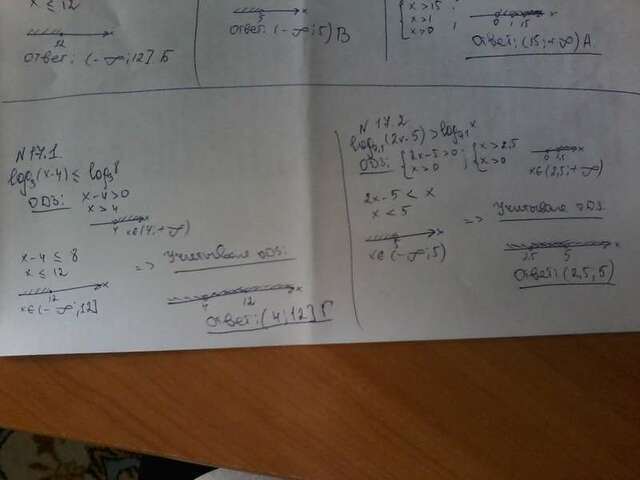 x ≤ 12
12 x
Ответ: (-∞; 12] Б
5 x
Ответ: (-∞; 5) В
{ x > 15
x > 1 ;
x > 0
0 1 15 x
Ответ: (15; +∞) А
N 17.1
log₃(x-4) ≤ log₃8
ОДЗ: x-4>0
x > 4
4 x∈(4; +∞)
x-4 ≤ 8
x ≤ 12
12 x
x∈(-∞; 12]
=> Учитывая ОДЗ:
4 12 x
Ответ: (4; 12] Г
N 17.2
log₀,₁(2x-5) > log₀,₁x
ОДЗ: { 2x-5>0 ; { x>2,5
x>0 x>0
0 2,5 x
x∈(2,5; +∞)
2x-5 < x
x < 5
5 x
x∈(-∞; 5)
=> Учитывая ОДЗ:
2,5 5 x
Ответ: (2,5; 5)